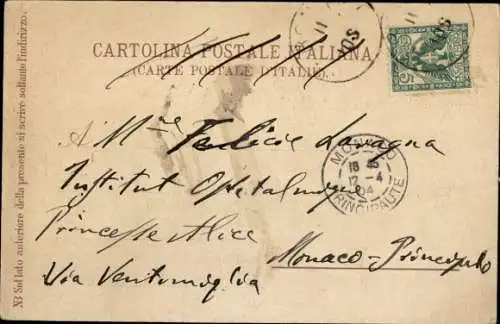 CARTOLINA POSTALE ITALIANA
(CARTE POSTALE D'ITALIE)
NB Sul lato anteriore della presente si scrive soltanto l'indirizzo.
11
SOL
11
SOL
5
A Mme Felicie Lavagna
MONACO
12 - 4
04
PRINCIPAUTE
Institut Ophtalmique
Princesse Alice
Monaco-Principato
Via Ventimiglia